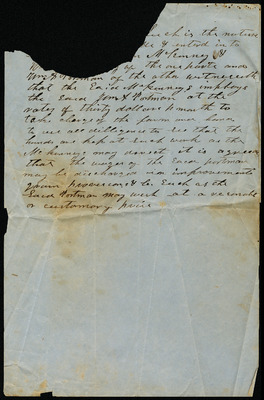 such is the nature
entered into
McKinney &
of the one part and
Wm Hortman of the other witnesseth
that the Said McKinneys employs
the Said Hortman at the
rates of thirty dollars p month to
take charge of the farm and hands
to use all diligence to see that the
hands are kept at such work as the
McKinneys may direct it is agreed
that the wages of the Said Hortman
may be discharged in improvements
given provisions &c Such as the
Said Hortman may want at a reasonable
or customary price